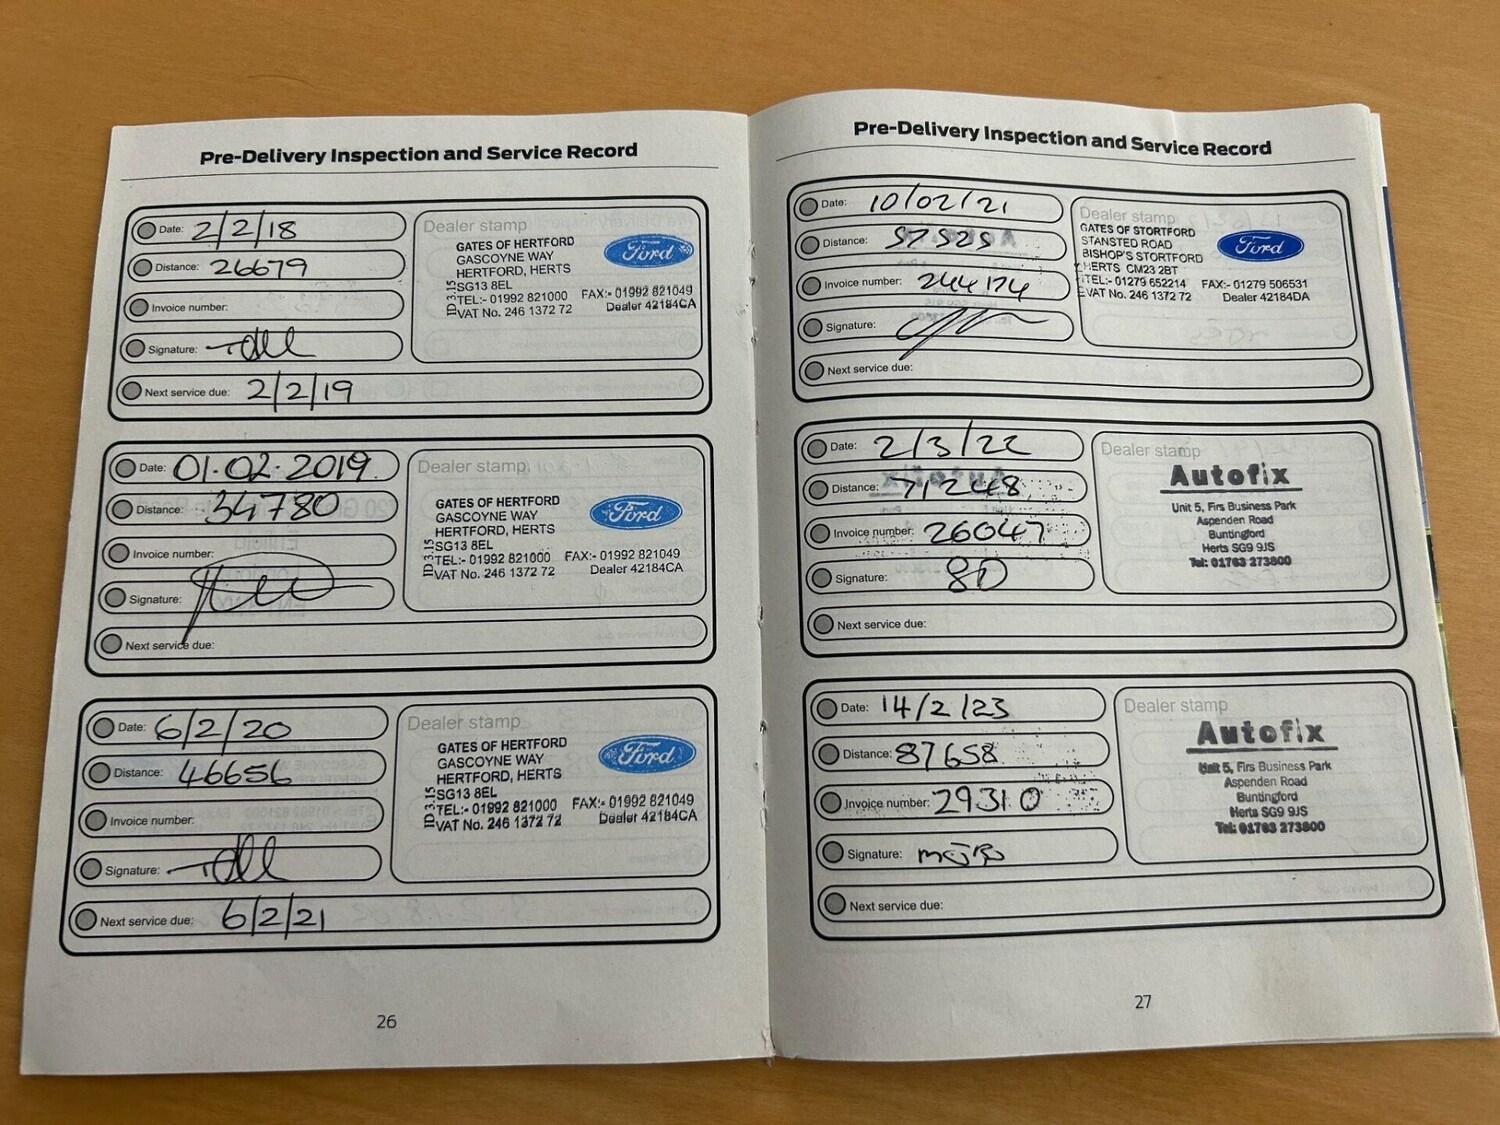 Pre-Delivery Inspection and Service Record
Date: 2/2/18
Distance: 26679
Invoice number:
Signature:
Next service due: 2/2/19
Dealer stamp
GATES OF HERTFORD
GASCOYNE WAY
HERTFORD, HERTS
SG13 8EL
TEL:- 01992 821000 FAX:- 01992 821049
VAT No. 246 1372 72 Dealer 42184CA
ID3.15
Ford
Date: 01.02.2019
Distance: 34780
Invoice number:
Signature:
Next service due:
Dealer stamp
GATES OF HERTFORD
GASCOYNE WAY
HERTFORD, HERTS
SG13 8EL
TEL:- 01992 821000 FAX:- 01992 821049
VAT No. 246 1372 72 Dealer 42184CA
ID3.15
Ford
Date: 6/2/20
Distance: 46656
Invoice number:
Signature:
Next service due: 6/2/21
Dealer stamp
GATES OF HERTFORD
GASCOYNE WAY
HERTFORD, HERTS
SG13 8EL
TEL:- 01992 821000 FAX:- 01992 821049
VAT No. 246 1372 72 Dealer 42184CA
ID3.15
Ford
26
Pre-Delivery Inspection and Service Record
Date: 10/02/21
Distance: 57525
Invoice number: 244174
Signature:
Next service due:
Dealer stamp
GATES OF STORTFORD
STANSTED ROAD
BISHOP'S STORTFORD
HERTS CM23 2BT
TEL:- 01279 652214 FAX:- 01279 506531
VAT No. 246 1372 72 Dealer 42184DA
Ford
Date: 2/3/22
Distance: 71248
Invoice number: 26047
Signature:
Next service due:
Dealer stamp
Autofix
Unit 5, Firs Business Park
Aspenden Road
Buntingford
Herts SG9 9JS
Tel: 01763 273800
Date: 14/2/23
Distance: 87658
Invoice number: 29310
Signature:
Next service due:
Dealer stamp
Autofix
Unit 5, Firs Business Park
Aspenden Road
Buntingford
Herts SG9 9JS
Tel: 01763 273800
27